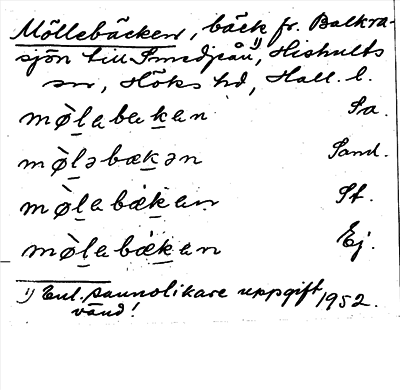 Möllebäcken, bäck fr. Balkra-
sjön till Smedjeån¹⁾, Hishults
sn, Höks hd, Hall. l.
mø̀labakan Sa.
mø̀ləbækən Sand.
mø̀labækan St.
mø̀labækan Ej.
¹⁾ Enl. sannolikare uppgift 1952.
vänd!